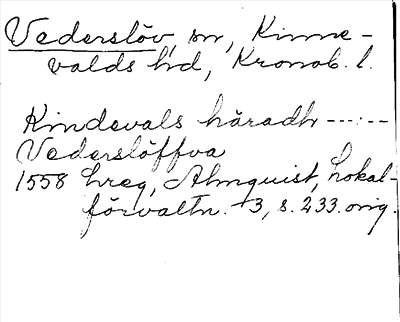 Vederslöv, sn, Kinne-
valds hd, Kronob. l.
Kindevals häradh ---:---
Vederslöffva
1558 Lreg, Almquist, Lokal-
förvaltn. 3, s. 233. orig.